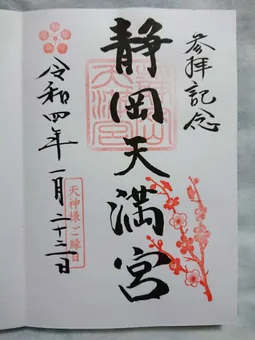 参拝記念
静岡天満宮
令和四年一月二十三日
天神様ご縁日